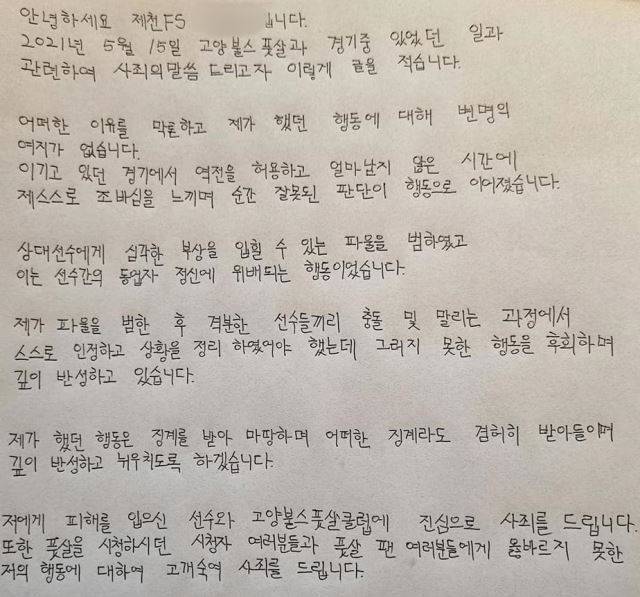 안녕하세요 제천FS 니다.
2021년 5월 15일 고양불스풋살과 경기중 있었던 일과
관련하여 사죄의말씀 드리고자 이렇게 글을 적습니다.
어떠한 이유를 막론하고 제가 했던 행동에 대해 변명의
여지가 없습니다.
이기고 있던 경기에서 역전을 허용하고 얼마남지 않은 시간에
제스스로 조바심을 느끼며 순간 잘못된 판단이 행동으로 이어졌습니다.
상대선수에게 심각한 부상을 입힐 수 있는 파울을 범하였고
이는 선수간의 동업자 정신에 위배되는 행동이었습니다.
제가 파울을 범한 후 격분한 선수들끼리 충돌 및 말리는 과정에서
스스로 인정하고 상황을 정리 하였어야 했는데 그러지 못한 행동을 후회하며
깊이 반성하고 있습니다.
제가 했던 행동은 징계를 받아 마땅하며 어떠한 징계라도 겸허히 받아들이며
깊이 반성하고 뉘우치도록 하겠습니다.
저에게 피해를 입으신 선수와 고양불스풋살클럽에 진심으로 사죄를 드립니다.
또한 풋살을 시청하시던 시청자 여러분들과 풋살 팬 여러분들에게 옳바르지 못한
저의 행동에 대하여 고개숙여 사죄를 드립니다.